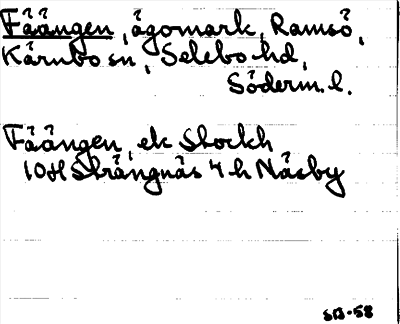 Fäängen, ägomark, Ramsö,
Kärnbo sn, Selebo hd,
Söderm. l.
Fäängen, ek Stockh
10H Strängnäs 4 h Näsby
SB-58